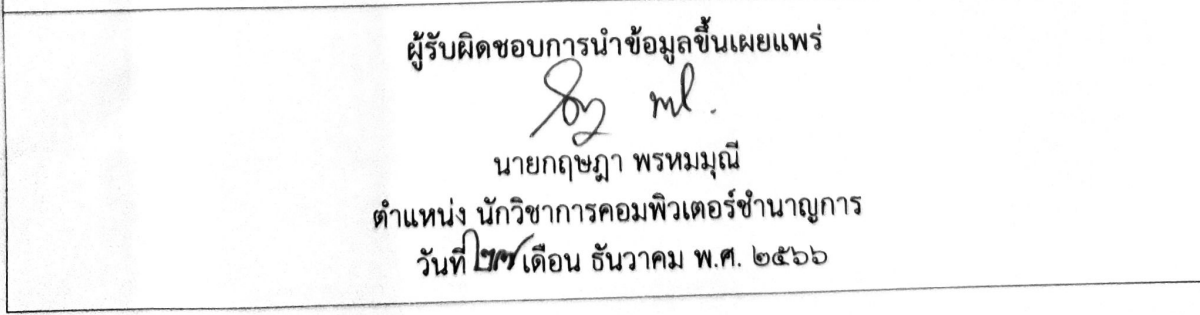 ผู้รับผิดชอบการนำข้อมูลขึ้นเผยแพร่
นายกฤษฎา พรหมมุณี
ตำแหน่ง นักวิชาการคอมพิวเตอร์ชำนาญการ
วันที่ ๒๗ เดือน ธันวาคม พ.ศ. ๒๕๖๖